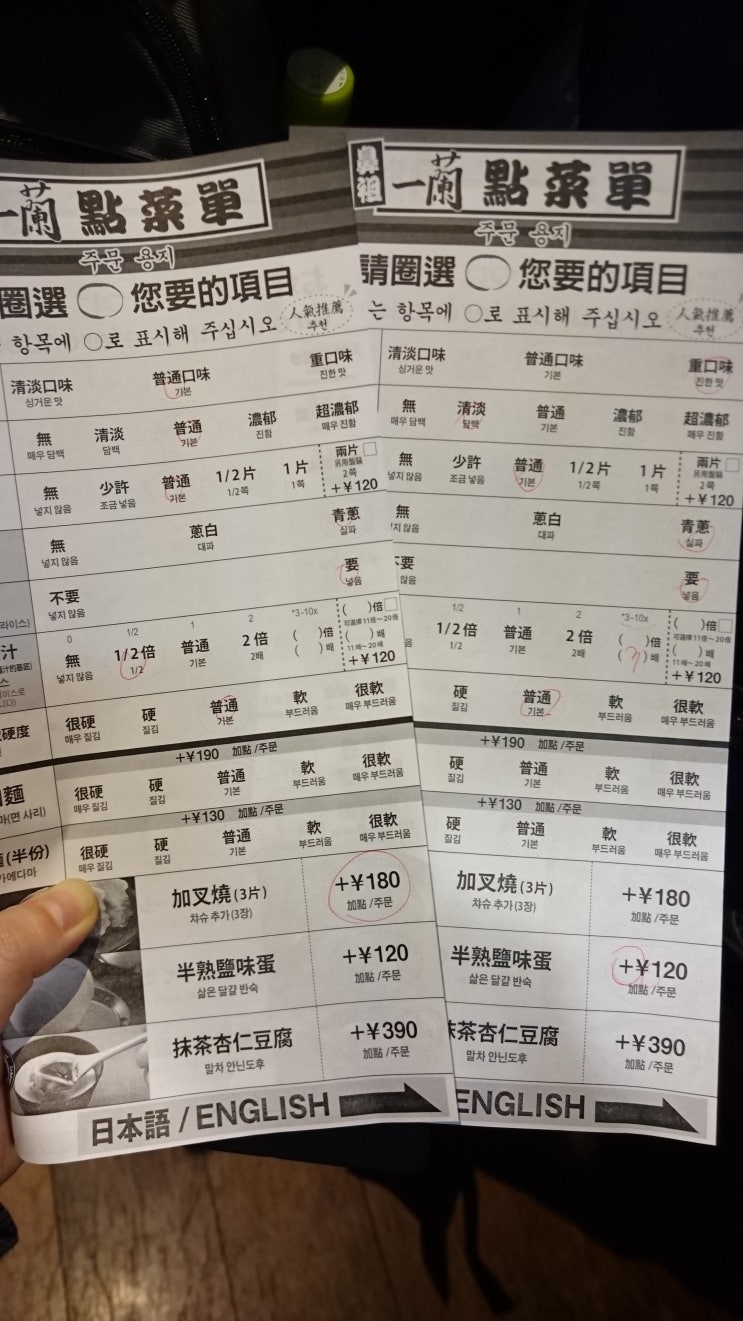 一蘭 點菜單
주문 용지
圈選 您要的項目
항목에 ○로 표시해 주십시오
人氣推薦
추천
清淡口味 普通口味 重口味
싱거운 맛 기본 진한 맛
無 清淡 普通 濃郁 超濃郁
매우 담백 담백 기본 진함 매우 진함
無 少許 普通 1/2片 1片 兩片
넣지 않음 조금 넣음 기본 1/2쪽 1쪽 2쪽
+¥120
無 蔥白 青蔥
넣지 않음 대파 실파
不要 要
넣지 않음 넣음
0 1/2 1 2 *3-10x
無 1/2倍 普通 2倍 ( )倍 ( )倍
넣지 않음 1/2 기본 2배 ( )배 ( )배
可選擇11倍～20倍
11배～20배
+¥120
汁
硬度 很硬 硬 普通 軟 很軟
매우 질김 질김 기본 부드러움 매우 부드러움
+¥190 加點/주문
麵 很硬 硬 普通 軟 很軟
(면 사리) 매우 질김 질김 기본 부드러움 매우 부드러움
+¥130 加點/주문
(半份) 很硬 硬 普通 軟 很軟
매우 질김 질김 기본 부드러움 매우 부드러움
加叉燒(3片) +¥180
차슈 추가(3장) 加點/주문
半熟鹽味蛋 +¥120
삶은 달걀 반숙 加點/주문
抹茶杏仁豆腐 +¥390
말차 안닌도후 加點/주문
日本語/ENGLISH
鼻祖
一蘭 點菜單
주문 용지
請圈選 您要的項目
는 항목에 ○로 표시해 주십시오
人氣推薦
추천
清淡口味 普通口味 重口味
싱거운 맛 기본 진한 맛
無 清淡 普通 濃郁 超濃郁
매우 담백 담백 기본 진함 매우 진함
無 少許 普通 1/2片 1片 兩片
넣지 않음 조금 넣음 기본 1/2쪽 1쪽 2쪽
+¥120
無 蔥白 青蔥
지 않음 대파 실파
要 要
않음 넣음
1/2 1 2 *3-10x
1/2倍 普通 2倍 ( )倍 ( )倍
1/2 기본 2배 ( )배 ( )배
可選擇11倍～20倍
11배～20배
+¥120
硬 普通 軟 很軟
질김 기본 부드러움 매우 부드러움
+¥190 加點/주문
硬 普通 軟 很軟
질김 기본 부드러움 매우 부드러움
+¥130 加點/주문
硬 普通 軟 很軟
질김 기본 부드러움 매우 부드러움
加叉燒(3片) +¥180
차슈 추가(3장) 加點/주문
半熟鹽味蛋 +¥120
삶은 달걀 반숙 加點/주문
茶杏仁豆腐 +¥390
말차 안닌도후 加點/주문
ENGLISH